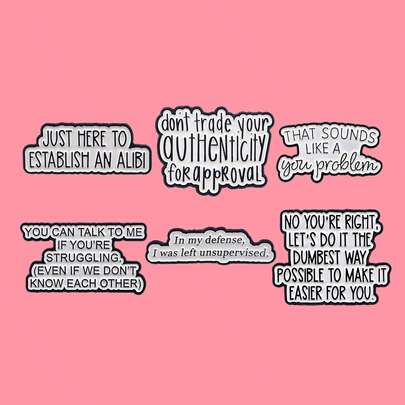 JUST HERE TO
ESTABLISH AN ALIBI
don't trade your
authenticity
for approval
THAT SOUNDS
LIKE A
you problem
YOU CAN TALK TO ME
IF YOU'RE
STRUGGLING.
(EVEN IF WE DON'T
KNOW EACH OTHER)
In my defense,
I was left unsupervised.
NO YOU'RE RIGHT,
LET'S DO IT THE
DUMBEST WAY
POSSIBLE TO MAKE IT
EASIER FOR YOU.